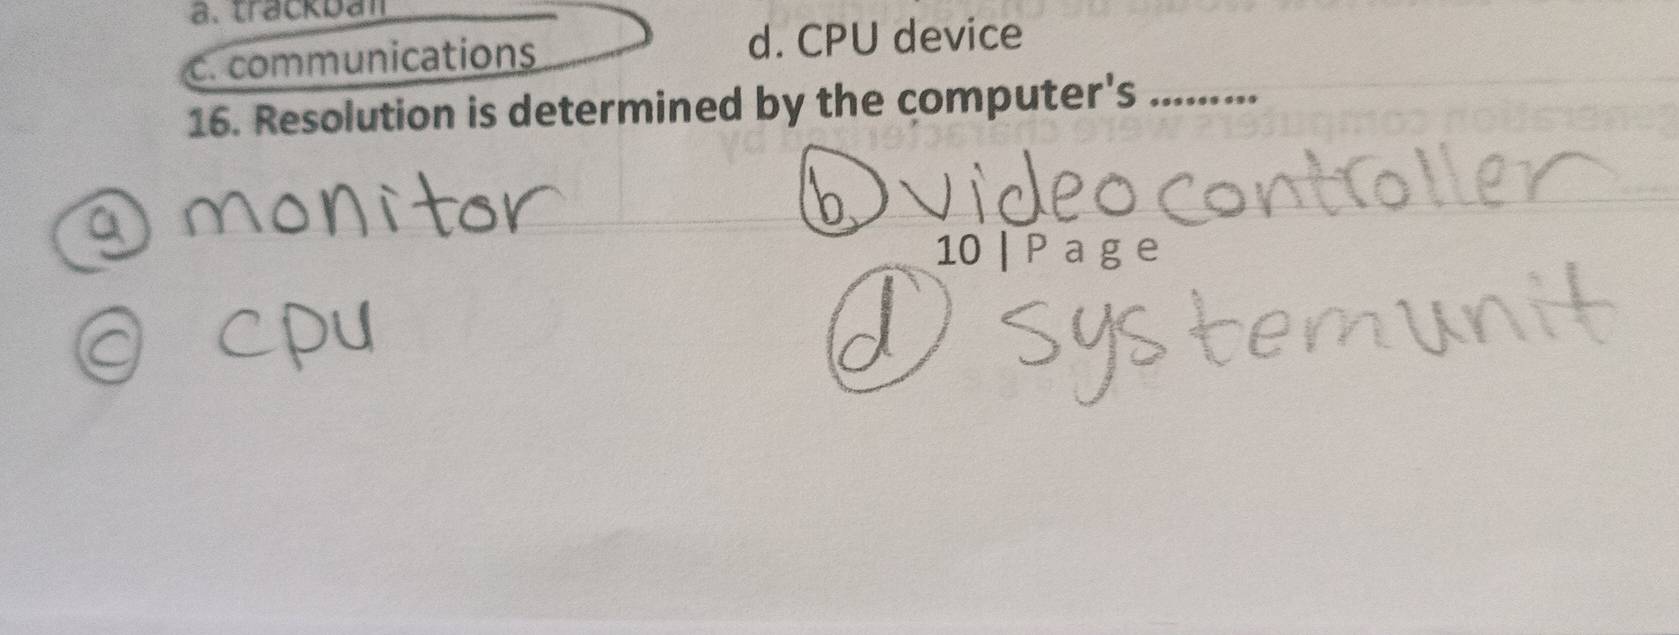 a. trackball
c. communications d. CPU device
16. Resolution is determined by the computer's .........
a monitor b) video controller
10 | P a g e
c cpu d system unit